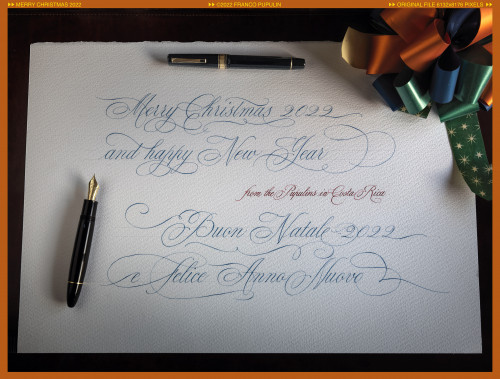 MERRY CHRISTMAS 2022
©2022 FRANCO PUPULIN
ORIGINAL FILE 6132x8176 PIXELS
Merry Christmas 2022
and happy New Year
from the Pupulins in Costa Rica
Buon Natale 2022
e Felice Anno Nuovo